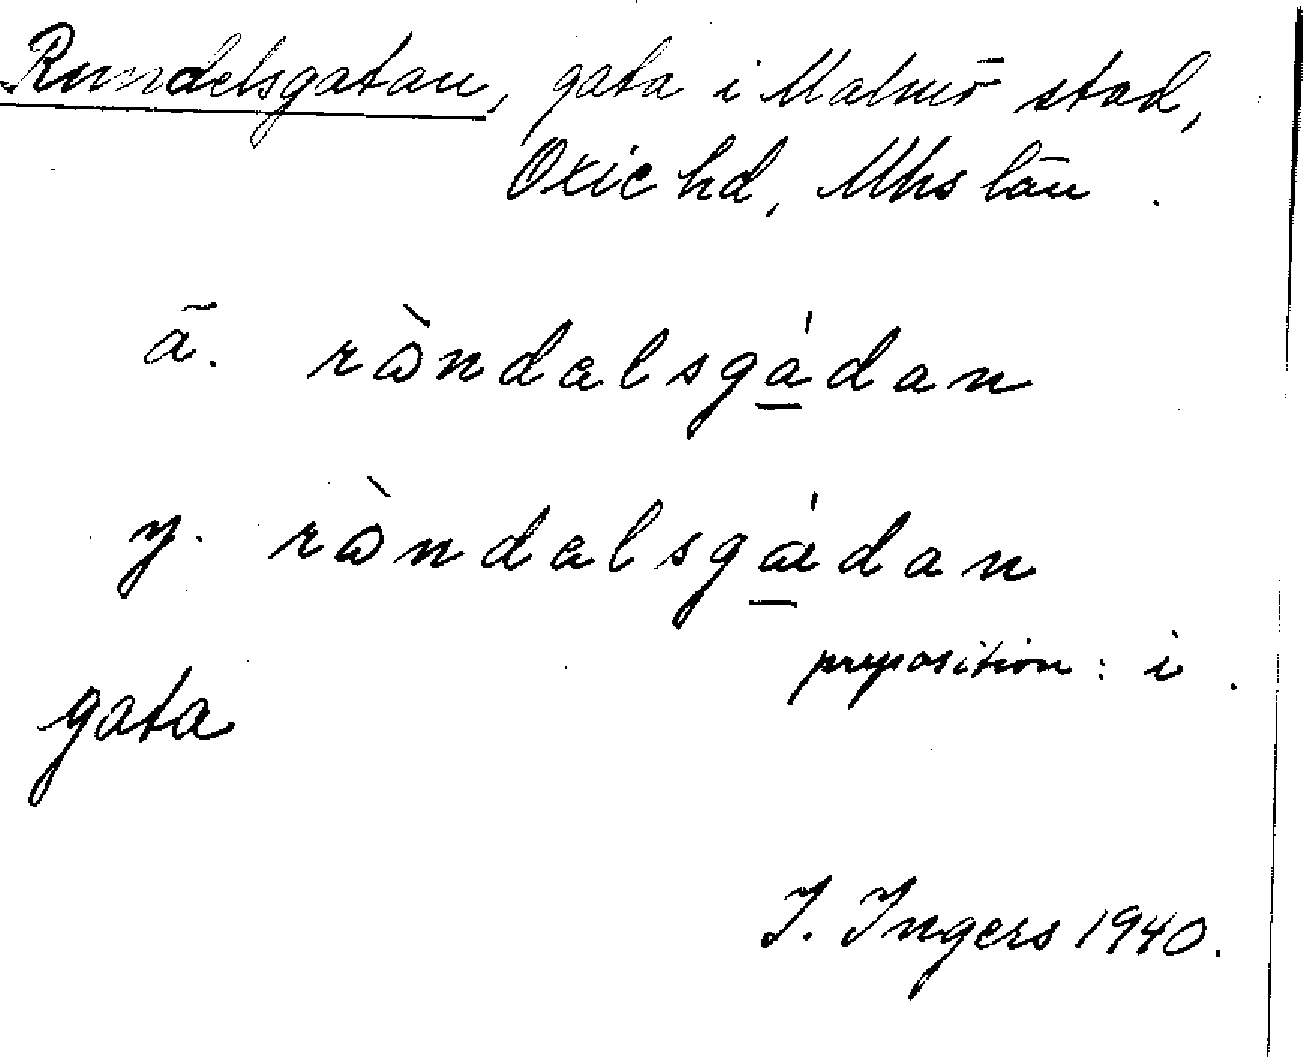 Rundelsgatan, gata i Malmö stad,
Oxie hd, Mhs län.
ä. ròndalsgádan
y. ròndalsgǽdan
preposition: i.
gata
I. Ingers 1940.